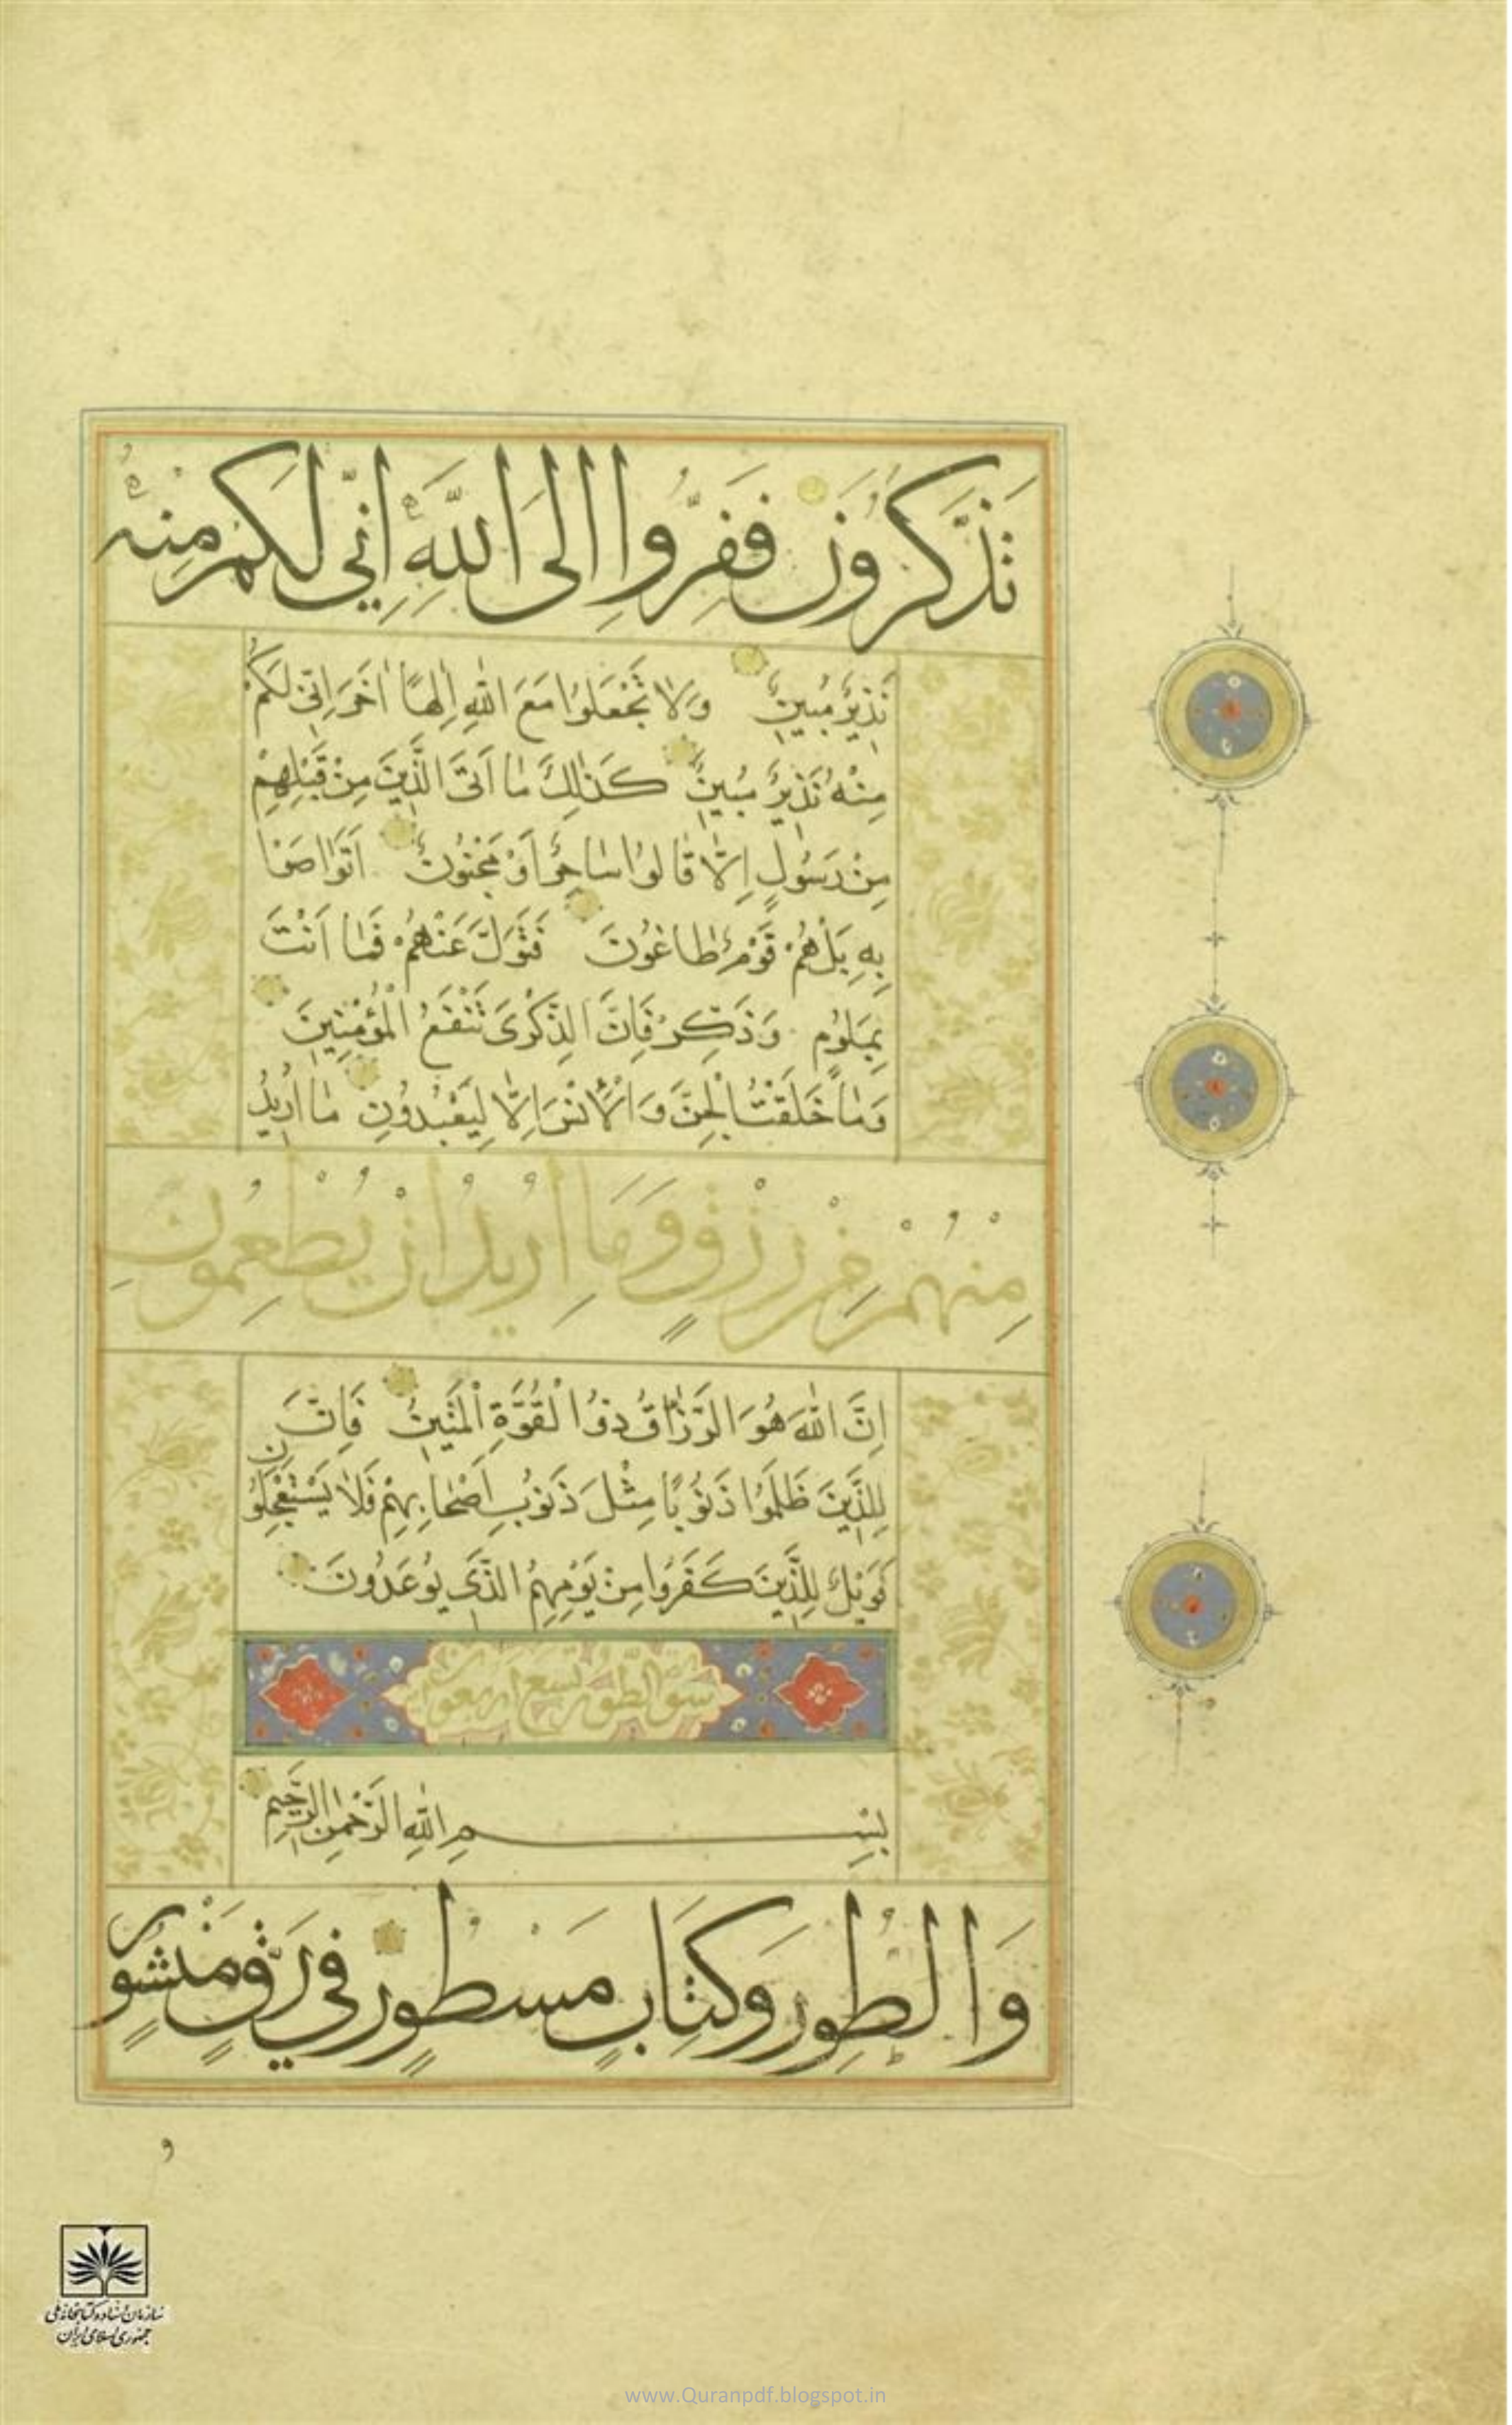 تَذَكَّرُونَ فَفِرُّوا إِلَى اللَّهِ إِنِّي لَكُمْ مِنْهُ
نَذِيرٌ مُبِينٌ وَلَا تَجْعَلُوا مَعَ اللَّهِ إِلٰهًا آخَرَ إِنِّي لَكُمْ
مِنْهُ نَذِيرٌ مُبِينٌ كَذٰلِكَ مَا أَتَى الَّذِينَ مِنْ قَبْلِهِمْ
مِنْ رَسُولٍ إِلَّا قَالُوا سَاحِرٌ أَوْ مَجْنُونٌ أَتَوَاصَوْا
بِهِ بَلْ هُمْ قَوْمٌ طَاغُونَ فَتَوَلَّ عَنْهُمْ فَمَا أَنْتَ
بِمَلُومٍ وَذَكِّرْ فَإِنَّ الذِّكْرَى تَنْفَعُ الْمُؤْمِنِينَ
وَمَا خَلَقْتُ الْجِنَّ وَالْإِنْسَ إِلَّا لِيَعْبُدُونِ مَا أُرِيدُ
مِنْهُمْ مِنْ رِزْقٍ وَمَا أُرِيدُ أَنْ يُطْعِمُونِ
إِنَّ اللَّهَ هُوَ الرَّزَّاقُ ذُو الْقُوَّةِ الْمَتِينُ فَإِنَّ
لِلَّذِينَ ظَلَمُوا ذَنُوبًا مِثْلَ ذَنُوبِ أَصْحَابِهِمْ فَلَا يَسْتَعْجِلُونِ
فَوَيْلٌ لِلَّذِينَ كَفَرُوا مِنْ يَوْمِهِمُ الَّذِي يُوعَدُونَ
سورة الطور تسع اربعون
بِسْمِ اللَّهِ الرَّحْمٰنِ الرَّحِيمِ
وَالطُّورِ وَكِتَابٍ مَسْطُورٍ فِي رَقٍّ مَنْشُورٍ
و
سازمان اسناد و کتابخانه ملی
جمهوری اسلامی ایران
www.Quranpdf.blogspot.in